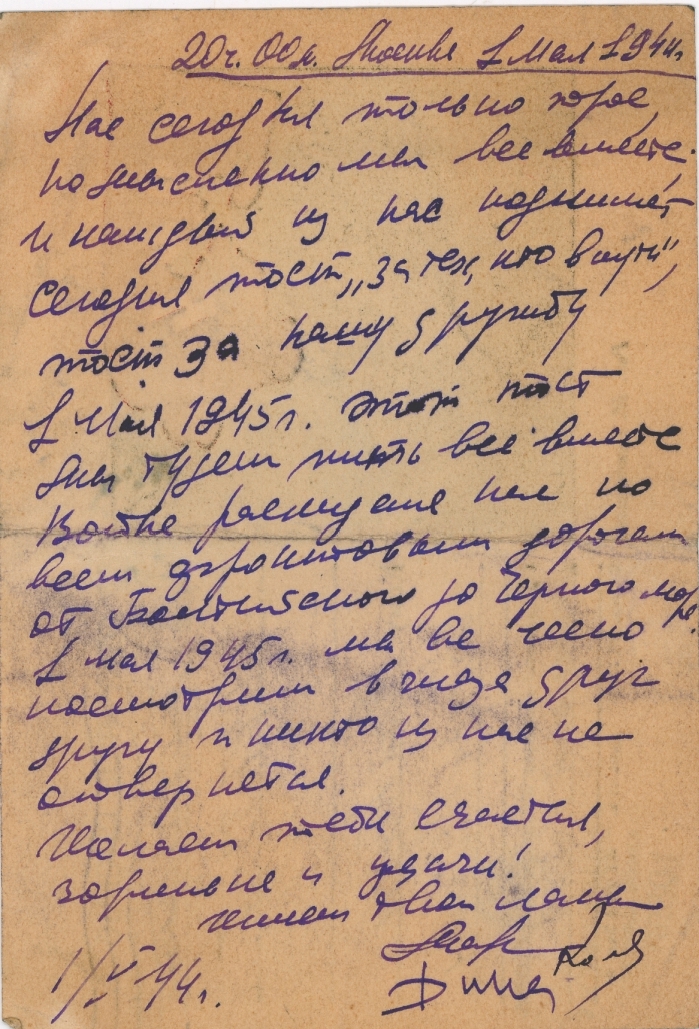 20ч. 00м. Москва 1 Мая 1944г.
Нас сегодня только трое,
но мысленно мы все вместе.
и каждый из нас поднимет
сегодня тост „за тех, кто в пути",
тост за нашу дружбу
1 Мая 1945г. этот тост
мы будем пить все вместе
Война раскидала нас по
всем фронтовым дорогам
от Балтийского до Черного моря.
1 мая 1945г. мы все честно
посмотрим в глаза друг
другу и никто из нас не
отвернется.
Желаем тебе счастья,
здоровья и удачи!
твои
Коля
Дима
1/V 44г.